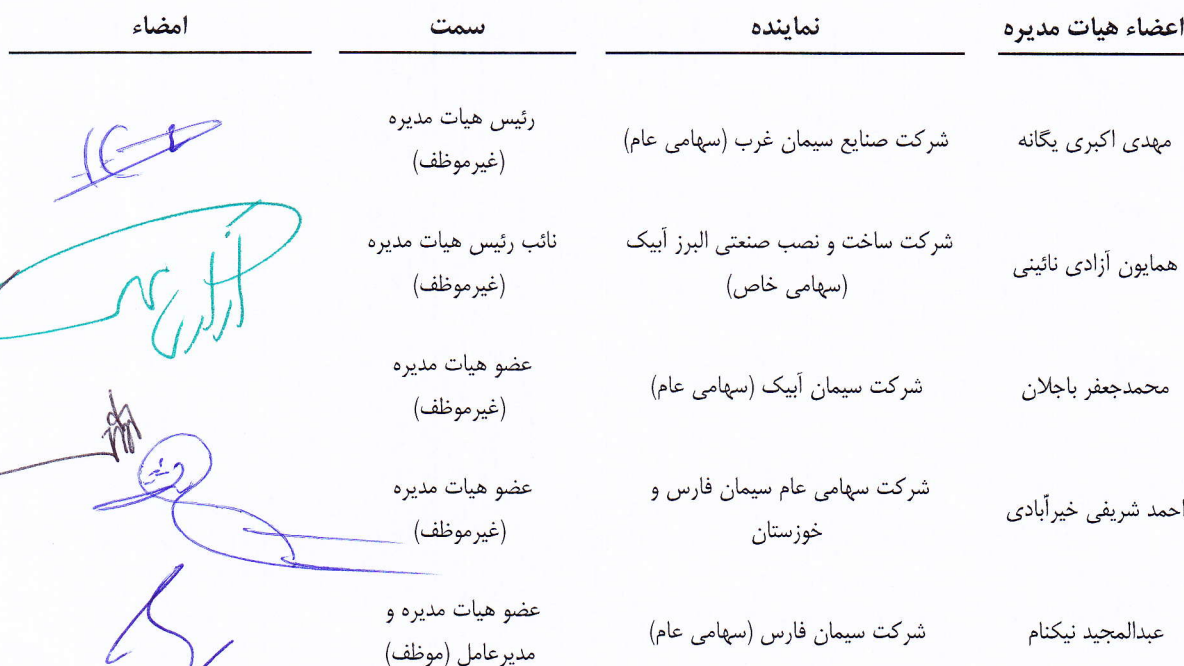 اعضاء هیات مدیره نماینده سمت امضاء
مهدی اکبری یگانه شرکت صنایع سیمان غرب (سهامی عام) رئیس هیات مدیره
(غیرموظف)
همایون آزادی نائینی شرکت ساخت و نصب صنعتی البرز آبیک نائب رئیس هیات مدیره
(سهامی خاص) (غیرموظف)
محمدجعفر باجلان شرکت سیمان آبیک (سهامی عام) عضو هیات مدیره
(غیرموظف)
احمد شریفی خیرآبادی شرکت سهامی عام سیمان فارس و عضو هیات مدیره
خوزستان (غیرموظف)
عبدالمجید نیکنام شرکت سیمان فارس (سهامی عام) عضو هیات مدیره و
مدیرعامل (موظف)